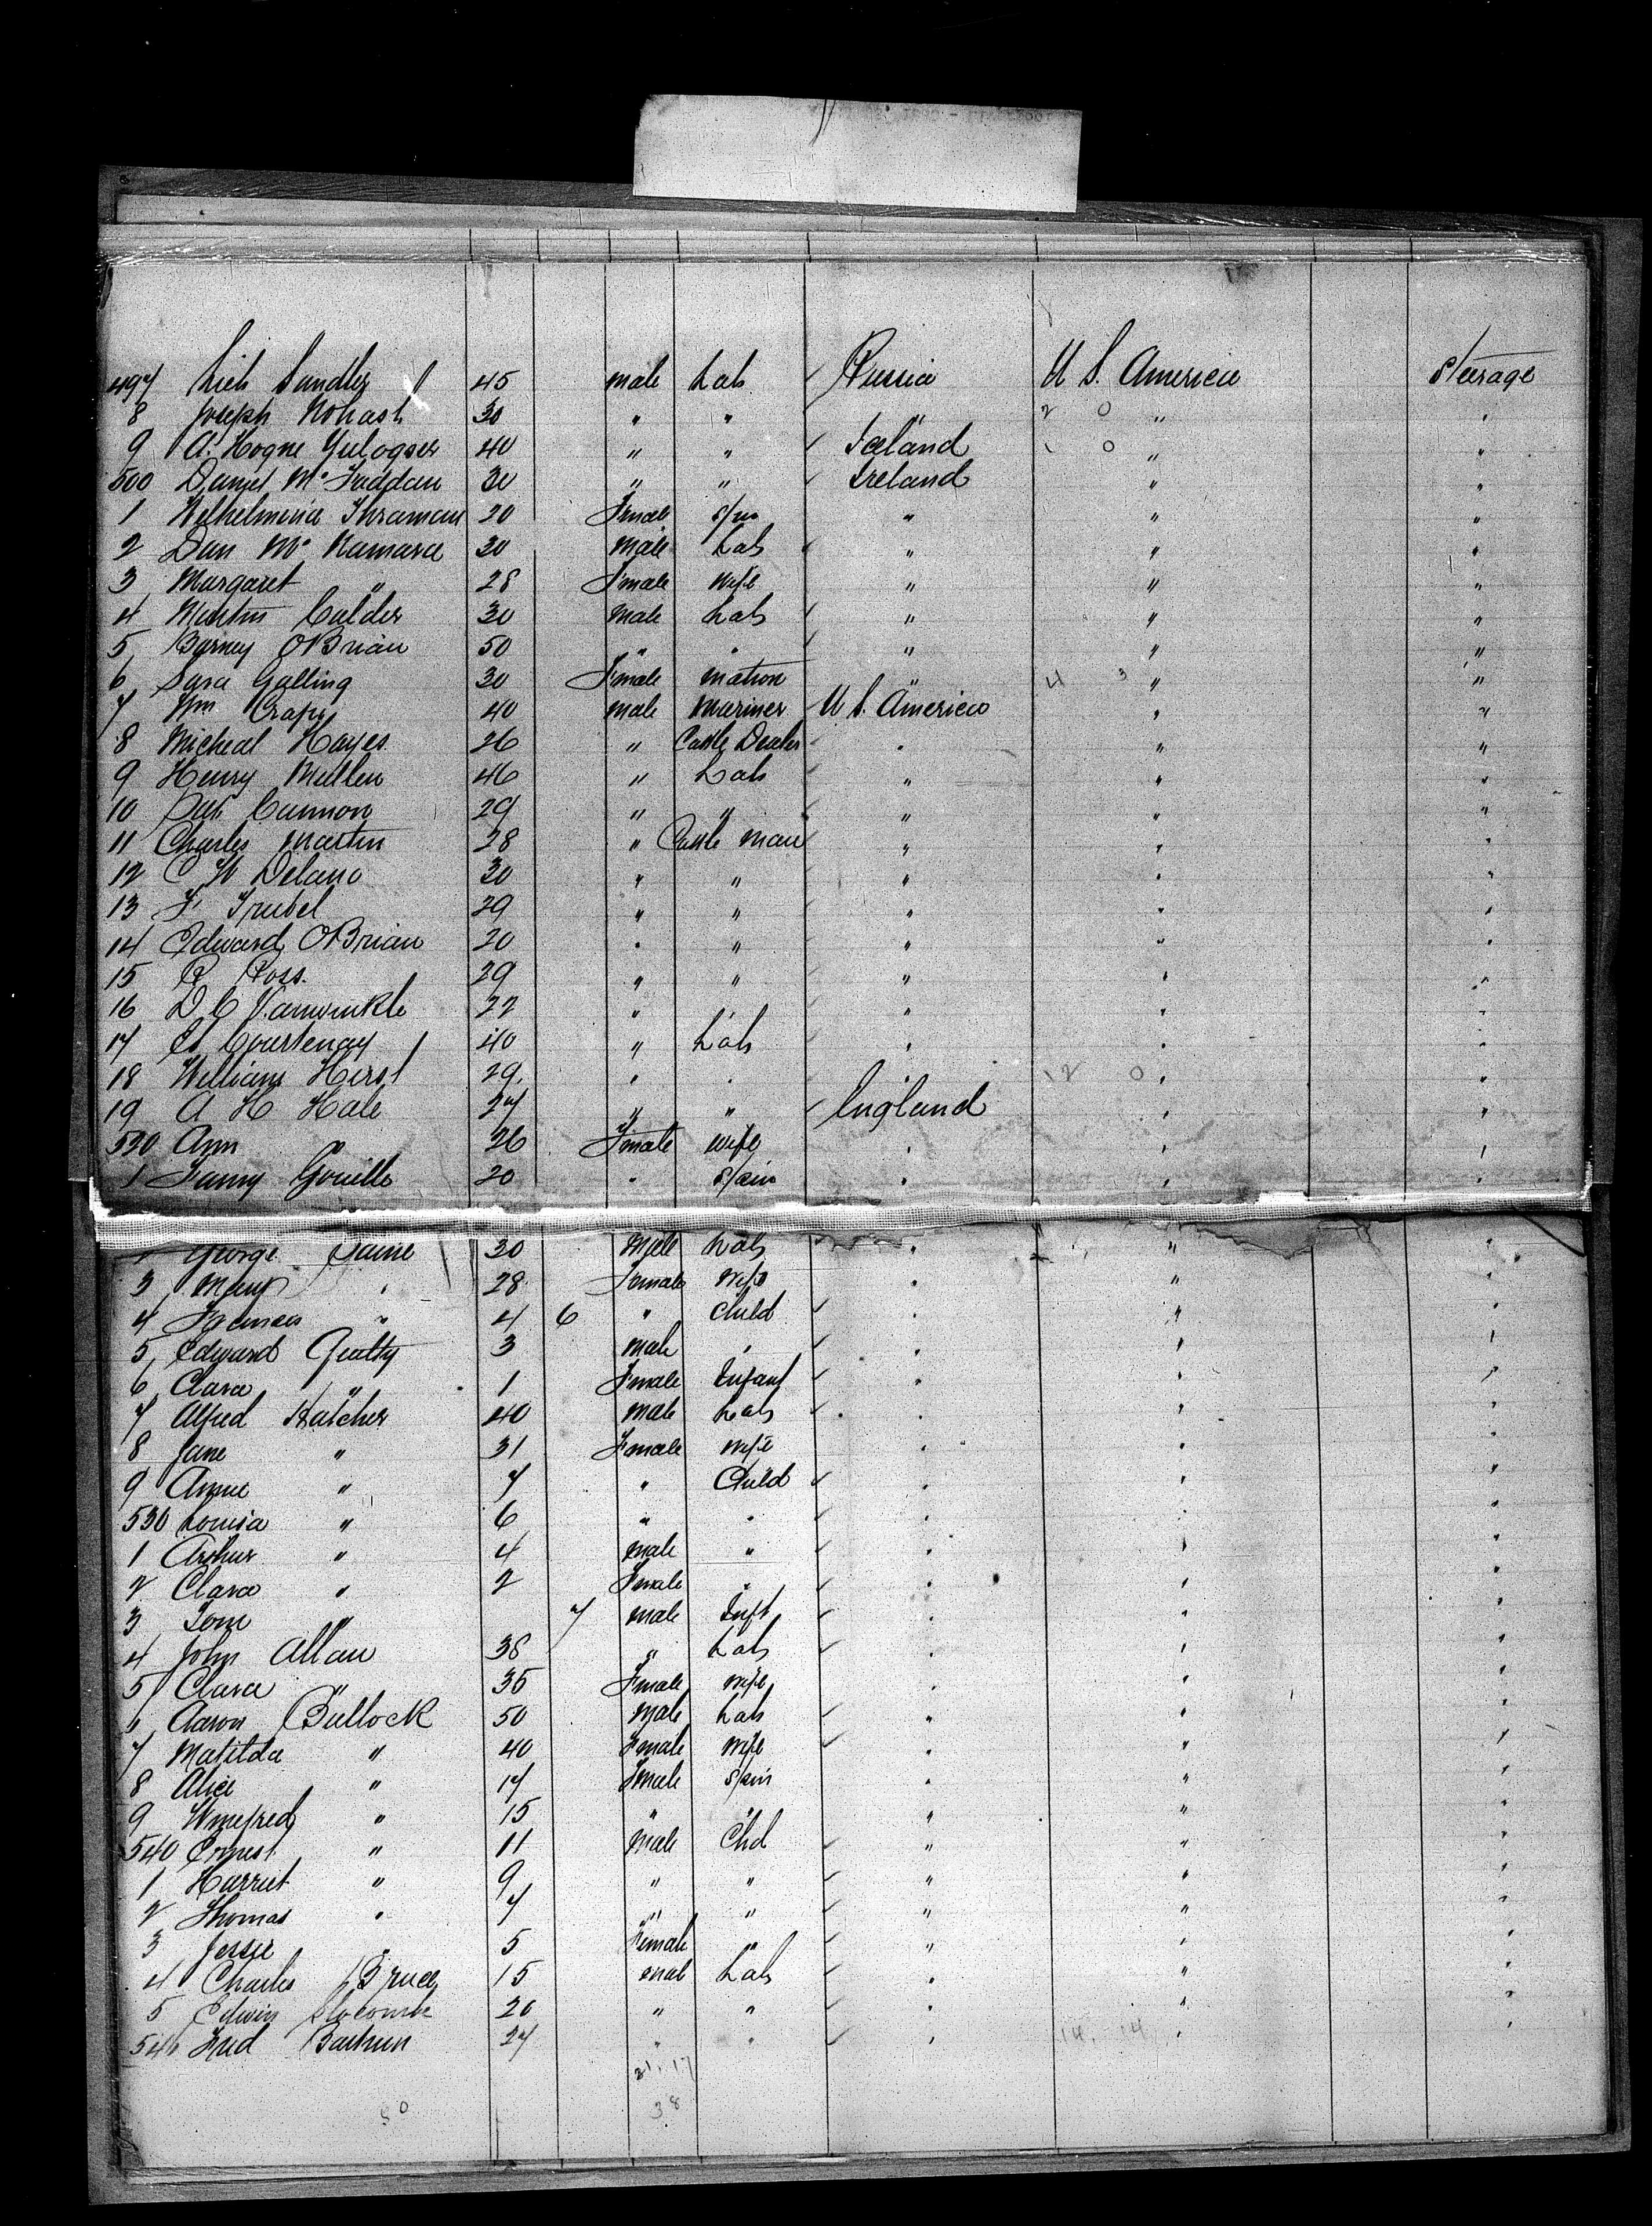 497 Sundler 45 male Lab Russia U S. America Steerage
8 Joseph 30 " " " "
9 A. Hogne 40 " " Iceland " "
500 Daniel Mc Faddan 30 " " Ireland " "
1 Wilhelmina 20 Female Spin " " "
2 Dan Mc Namara 30 male Lab " " "
3 Margaret " 28 Female wife " " "
4 Martin Calder 30 male Lab " " "
5 Barney OBrian 50 " " " " "
6 Sara Galling 30 Female matron " " "
7 Wm 40 male Mariner U S. America " "
8 Micheal Hayes 26 " Cattle Dealer " " "
9 Henry Mullen 46 " Lab " " "
10 Pat. Cannon 29 " " " " "
11 Charles Martin 28 " Cattle man " " "
12 C W Delano 30 " " " " "
13 F 29 " " " " "
14 Edward OBrian 20 " " " " "
15 R Ross. 29 " " " " "
16 D C Vanwinkle 22 " " " " "
17 Courtenay 40 " Lab " " "
18 William Hirst 29. " " " "
19 A H Hale 27 " " England " "
520 Ann " 26 Female wife " " "
1 Fanny 20 " Spin " " "
George 30 Male Lab " " "
3 Mary " 28 Female wife " " "
4 Frances " 4 6 " Child " " "
5 Edward Guilty 3 male " " " "
6 Clara " 1 Female Infant " " "
7 Alfred Hatcher 40 male Lab " " "
8 Jane " 31 Female wife " " "
9 Annie " 7 " Child " " "
530 Louisa " 6 " " " " "
1 Arthur " 4 male " " " "
2 Clara " 2 Female " " " "
3 Tom " 7 male Inft " " "
4 John Allan 38 " Lab " " "
5 Clara " 35 Female wife " " "
6 Aaron Bullock 50 Male Lab " " "
7 Matilda " 40 Female wife " " "
8 Alice " 17 Female Spin " " "
9 Winefred " 15 " " " " "
540 Ernest " 11 Male Chd " " "
1 Harriet " 9 " " " " "
2 Thomas " 7 " " " " "
3 Jessie " 5 Female " " " "
4 Charles Bruce 15 mal Lab " " "
5 Edwin Slocomb 20 " " " " "
546 Fred 24 " " " " "
21. 17
50 38